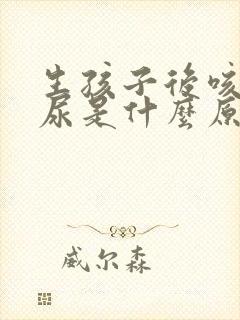 生孩子後咳
尿是什麼原
威尔森